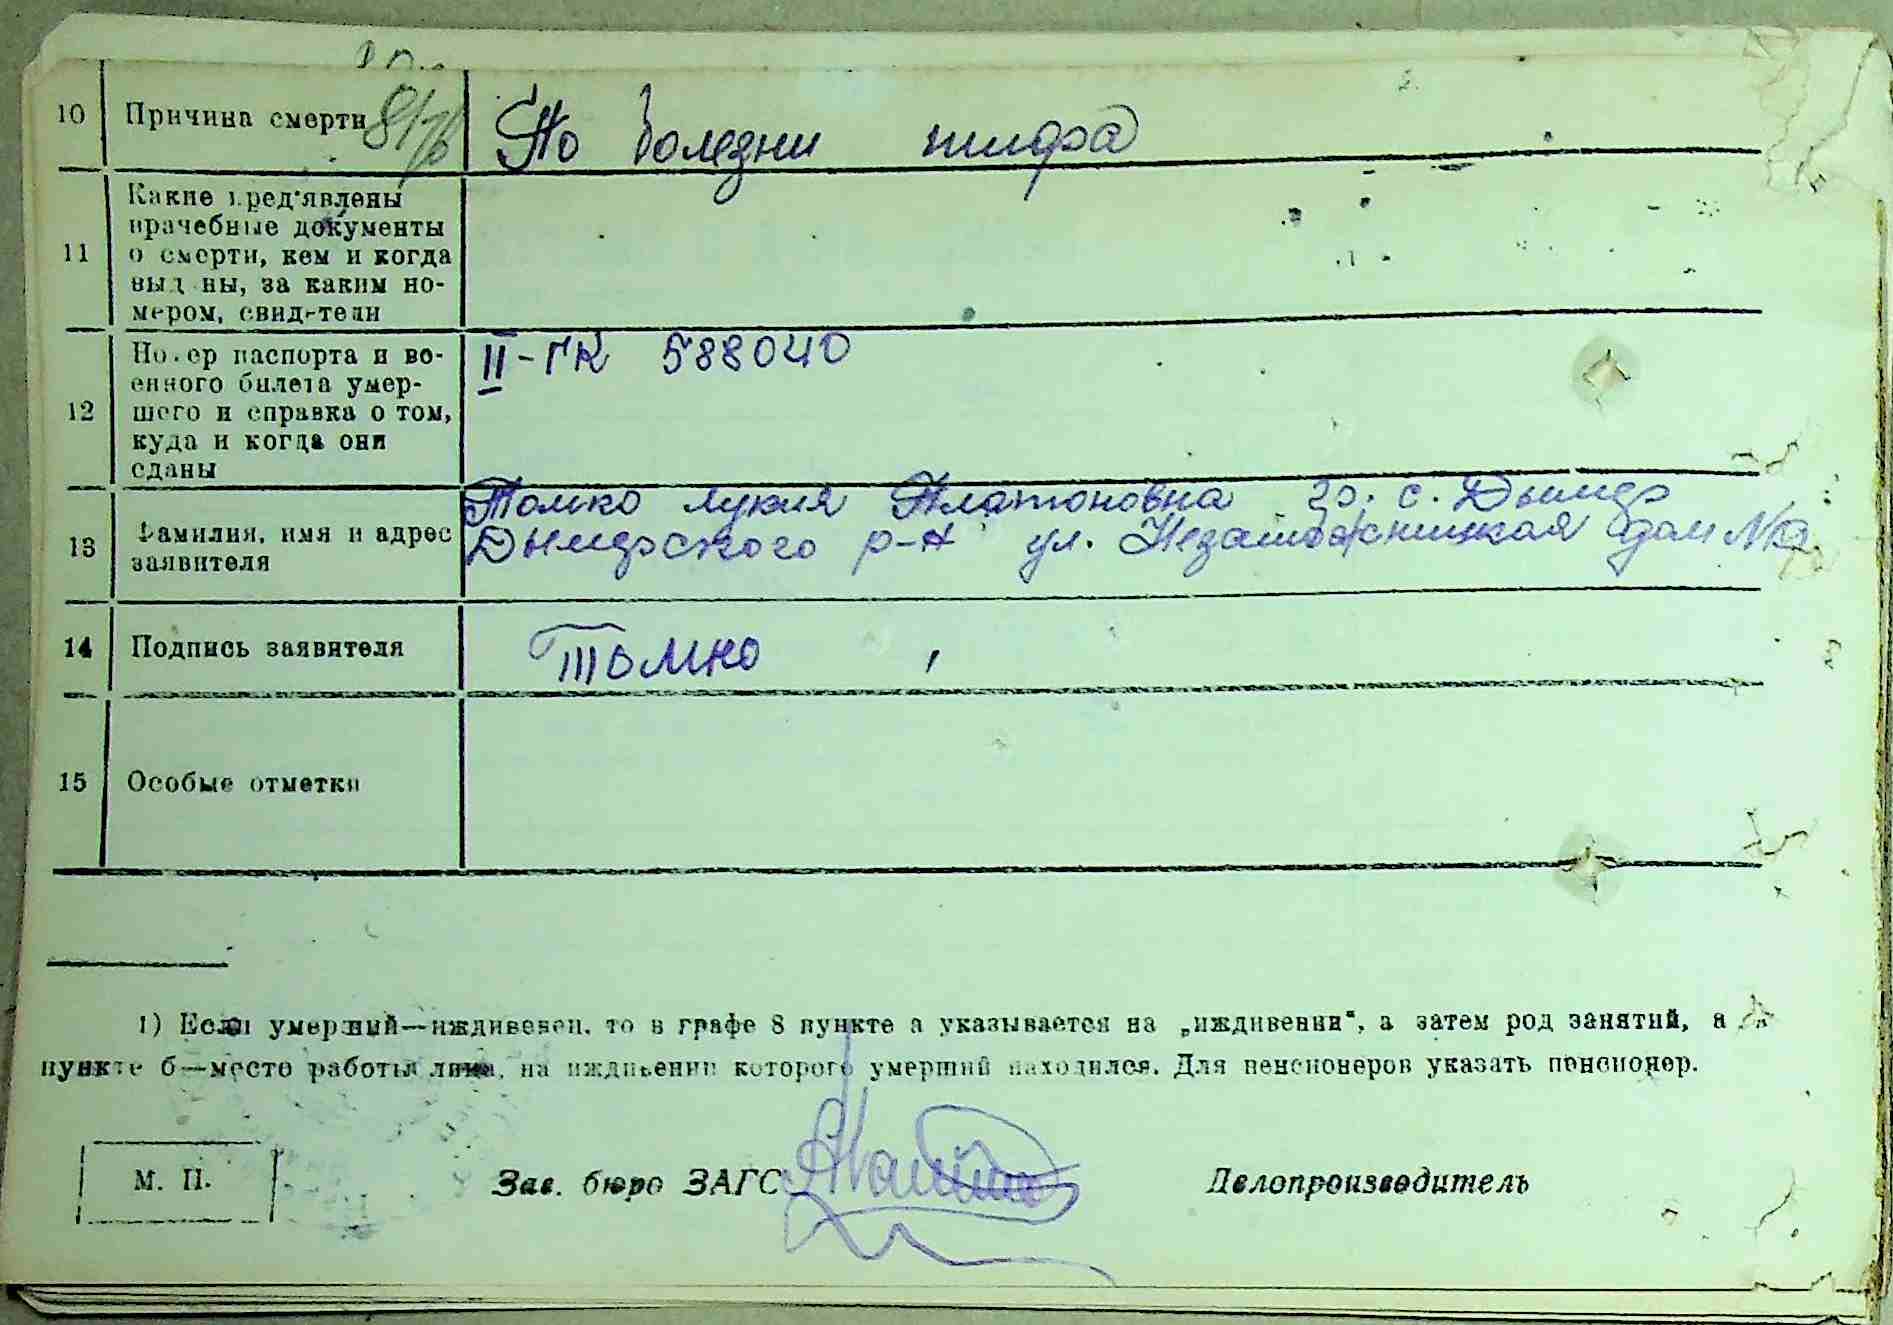 10 Причина смерти 8/76 По болезни тифа
11 Какие пред'явлены
врачебные документы
о смерти, кем и когда
выданы, за каким но-
мером, свидетели
12 Номер паспорта и во-
енного билета умер-
шего и справка о том,
куда и когда они
сданы
II-ГК 588040
13 Фамилия, имя и адрес
заявителя
Томко Лукия Платоновна гр. с. Дымер
Дымерского р-н ул. Незаможницкая дом №
14 Подпись заявителя Томко
15 Особые отметки
1) Если умерший—иждивенец, то в графе 8 пункте а указывается на „иждивении“, а затем род занятий, а в
пункте б—место работы лица, на иждивении которого умерший находился. Для пенсионеров указать пенсионер.
М. П. Зав. бюро ЗАГС Делопроизводитель